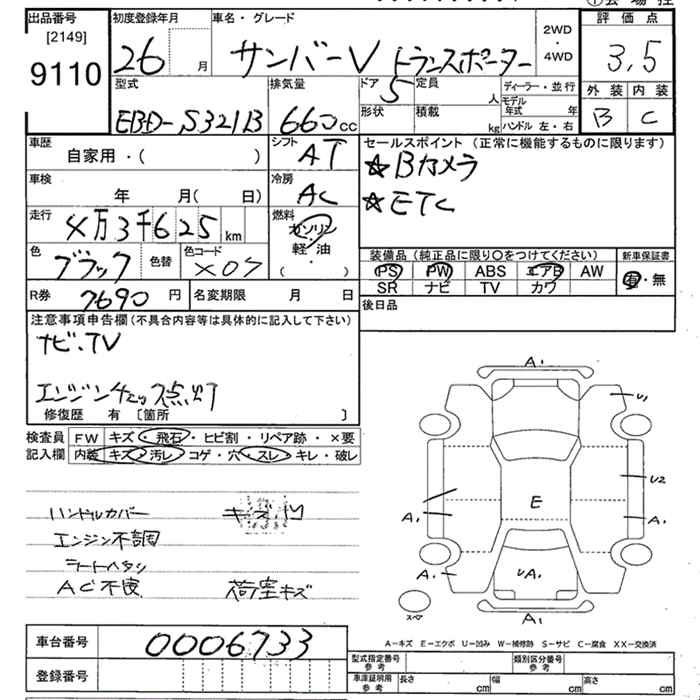 ①会場控
出品番号 初度登録年月 車名・グレード 評価点
[2149]
9110
26 月 サンバーV トランスポーター 2WD・4WD 3,5
型式 排気量 ドア 5 定員 人 ディーラー・並行 外装 内装
EBD-S321B 660cc 形状 積載 kg モデル年式 年 B C
ハンドル 左・右
車歴 シフト AT セールスポイント (正常に機能するものに限ります)
自家用・( )
☆Bカメラ
車検 冷房 AC
年 月( 日)
☆ETC
走行 4万3千625km 燃料 ガソリン・軽・油 ( )
色 ブラック 色替 色コード X07
装備品 (純正品に限り〇をつけてください) 新車保証書
PS PW ABS エアB AW 有・無
SR ナビ TV カワ
R券 7690円 名変期限 月 日
後日品
注意事項申告欄(不具合内容等は具体的に記入して下さい)
ナビ・TV
エンジンチェック点灯
修復歴 有 〔箇所 〕
検査員 FW キズ・飛石・ヒビ割・リペア跡・×要
記入欄 内装 キズ・汚レ・コゲ・穴・スレ・キレ・破レ
ハンドルカバー キズ凹
エンジン不調
シートヘタリ
AC不使 荷室キズ
A1
U1
U2
A1
E
A1
A1
UA1
スペア
A1
車台番号 0006733
A-キズ E-エクボ U-凹み W-補修跡 S-サビ C-腐食 XX-交換済
登録番号
型式指定番号 参考 類別区分番号 参考
車庫証明用 参考 長さ cm 幅 cm 高さ cm